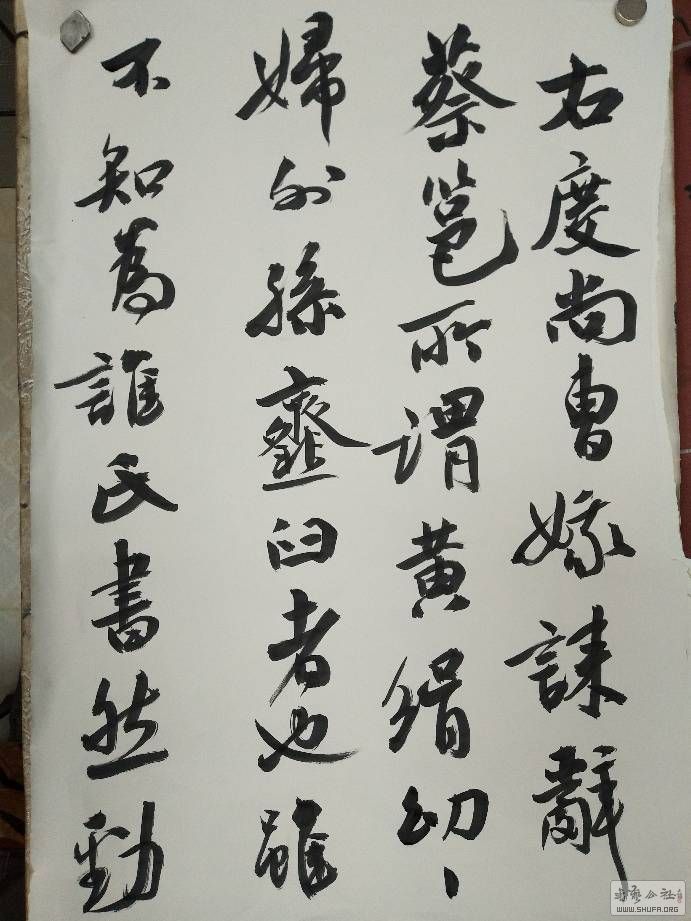 右度尚曹娥誄辭
蔡邕所謂黄絹幼丶
婦外孫虀臼者也雖
不知為誰氏書然勁
书艺公社
WWW.SHUFA.ORG